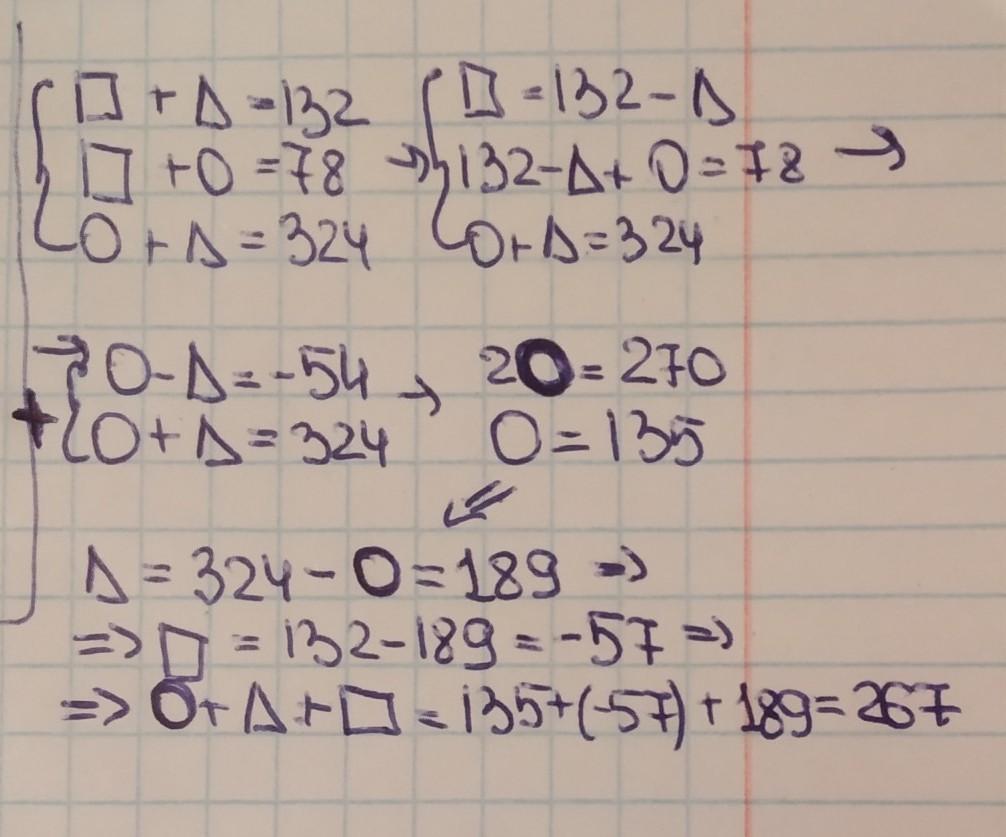 □ + Δ = 132
□ + O = 78 →
O + Δ = 324
□ = 132 - Δ
132 - Δ + O = 78 →
O + Δ = 324
→ O - Δ = -54 →
+ O + Δ = 324
2O = 270
O = 135
⇙
Δ = 324 - O = 189 ⇒
⇒ □ = 132 - 189 = -57 ⇒
⇒ O + Δ + □ = 135 + (-57) + 189 = 267